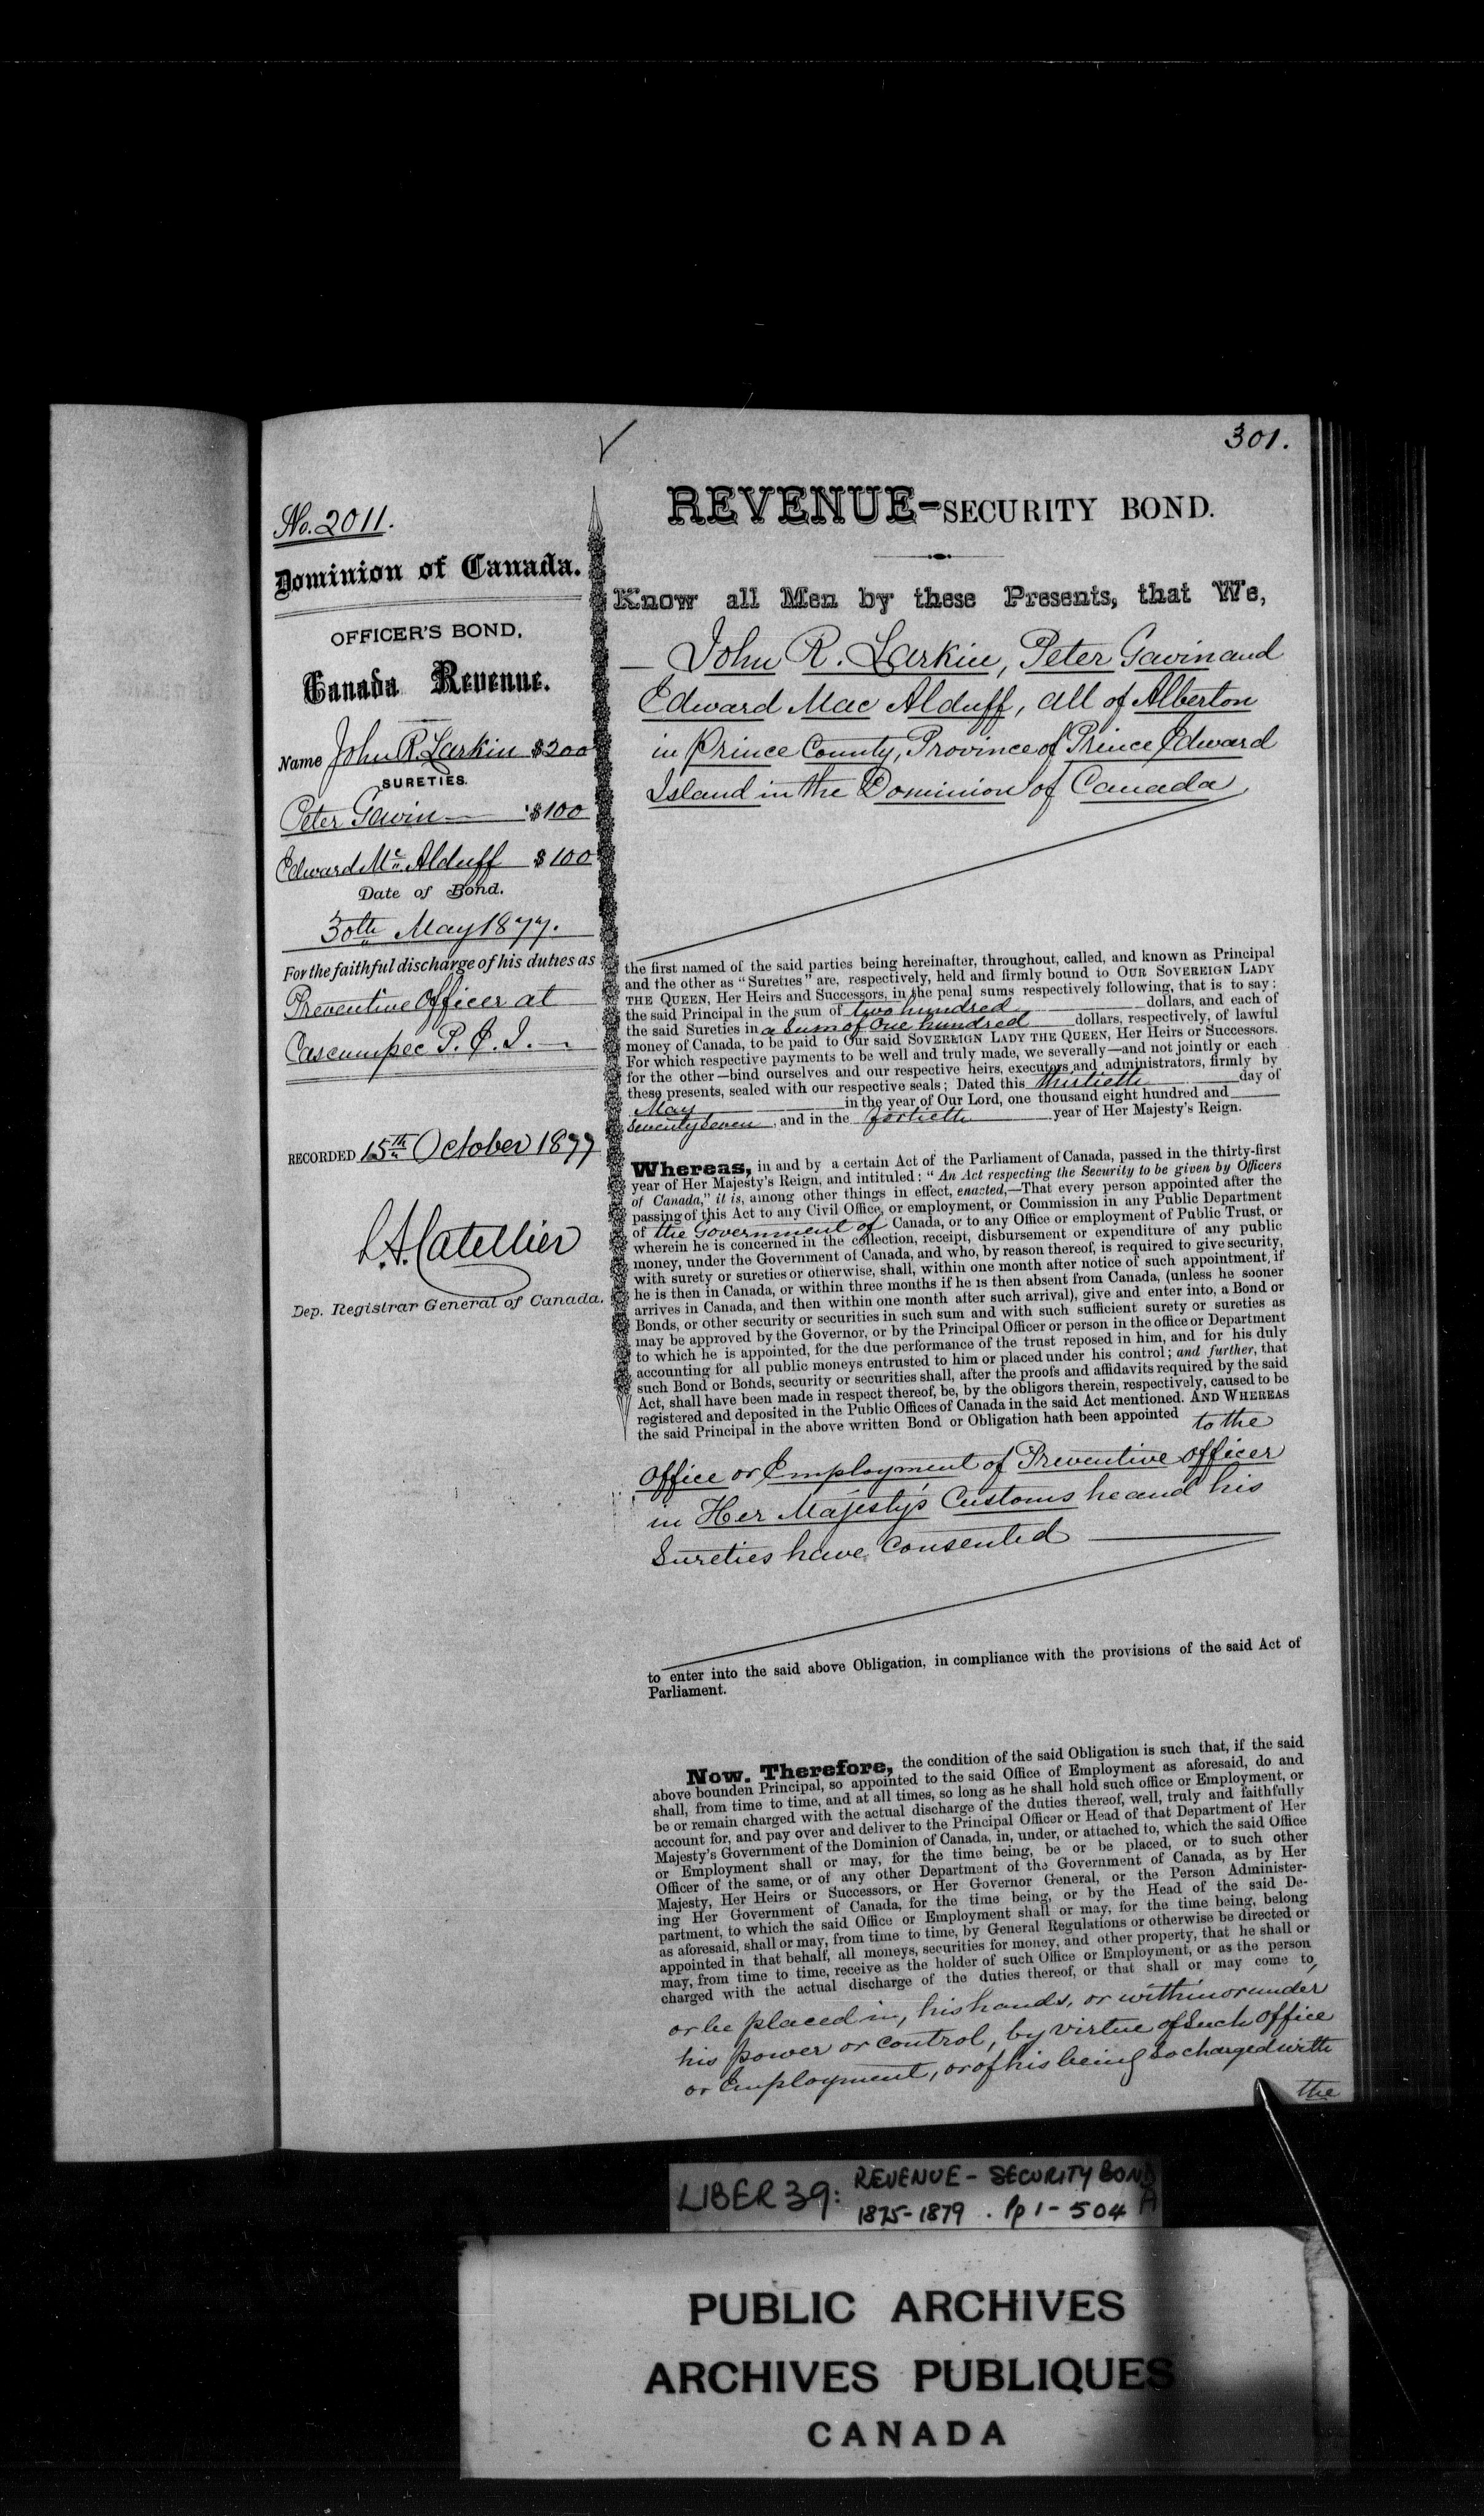 301.
No. 2011.
Dominion of Canada.
OFFICER'S BOND,
Canada Revenue.
Name John R. Larkin $200
SURETIES.
Peter Gavin $100
Edward Mc Alduff $100
Date of Bond.
30th May 1877.
For the faithful discharge of his duties as
Preventive Officer at
Cascumpec P. E. I.
RECORDED 15th October 1877
L. A. Catellier
Dep. Registrar General of Canada.
REVENUE-SECURITY BOND.
Know all Men by these Presents, that We,
John R. Larkin, Peter Gavin and
Edward Mac Alduff, all of Alberton
in Prince County, Province of Prince Edward
Island in the Dominion of Canada
the first named of the said parties being hereinafter, throughout, called, and known as Principal
and the other as "Sureties" are, respectively, held and firmly bound to OUR SOVEREIGN LADY
THE QUEEN, Her Heirs and Successors, in the penal sums respectively following, that is to say:
the said Principal in the sum of two hundred dollars, and each of
the said Sureties in a Sum of One hundred dollars, respectively, of lawful
money of Canada, to be paid to Our said SOVEREIGN LADY THE QUEEN, Her Heirs or Successors.
For which respective payments to be well and truly made, we severally—and not jointly or each
for the other—bind ourselves and our respective heirs, executors and administrators, firmly by
these presents, sealed with our respective seals; Dated this thirtieth day of
May in the year of Our Lord, one thousand eight hundred and
Seventy Seven, and in the fortieth year of Her Majesty's Reign.
Whereas, in and by a certain Act of the Parliament of Canada, passed in the thirty-first
year of Her Majesty's Reign, and intituled: "An Act respecting the Security to be given by Officers
of Canada," it is, among other things in effect, enacted,—That every person appointed after the
passing of this Act to any Civil Office, or employment, or Commission in any Public Department
of the Government of Canada, or to any Office or employment of Public Trust, or
wherein he is concerned in the collection, receipt, disbursement or expenditure of any public
money, under the Government of Canada, and who, by reason thereof, is required to give security,
with surety or sureties or otherwise, shall, within one month after notice of such appointment, if
he is then in Canada, or within three months if he is then absent from Canada, (unless he sooner
arrives in Canada, and then within one month after such arrival), give and enter into, a Bond or
Bonds, or other security or securities in such sum and with such sufficient surety or sureties as
may be approved by the Governor, or by the Principal Officer or person in the office or Department
to which he is appointed, for the due performance of the trust reposed in him, and for his duly
accounting for all public moneys entrusted to him or placed under his control; and further, that
such Bond or Bonds, security or securities shall, after the proofs and affidavits required by the said
Act, shall have been made in respect thereof, be, by the obligors therein, respectively, caused to be
registered and deposited in the Public Offices of Canada in the said Act mentioned. AND WHEREAS
the said Principal in the above written Bond or Obligation hath been appointed to the
Office or Employment of Preventive Officer
in Her Majesty's Customs he and his
Sureties have Consented
to enter into the said above Obligation, in compliance with the provisions of the said Act of
Parliament.
Now, Therefore, the condition of the said Obligation is such that, if the said
above bounden Principal, so appointed to the said Office of Employment as aforesaid, do and
shall, from time to time, and at all times, so long as he shall hold such office or Employment, or
be or remain charged with the actual discharge of the duties thereof, well, truly and faithfully
account for, and pay over and deliver to the Principal Officer or Head of that Department of Her
Majesty's Government of the Dominion of Canada, in, under, or attached to, which the said Office
or Employment shall or may, for the time being, be or be placed, or to such other
Officer of the same, or of any other Department of the Government of Canada, as by Her
Majesty, Her Heirs or Successors, or Her Governor General, or the Person Administer-
ing Her Government of Canada, for the time being, or by the Head of the said De-
partment, to which the said Office or Employment shall or may, for the time being, belong
as aforesaid, shall or may, from time to time, by General Regulations or otherwise be directed or
appointed in that behalf, all moneys, securities for money, and other property, that he shall or
may, from time to time, receive as the holder of such Office or Employment, or as the person
charged with the actual discharge of the duties thereof, or that shall or may come to,
or be placed in, his hands, or within or under
his power or control, by virtue of Such Office
or Employment, or of his being So charged with
the
LIBER 39: REVENUE - SECURITY BOND
1875-1879 . Pp 1-504 A
PUBLIC ARCHIVES
ARCHIVES PUBLIQUES
CANADA